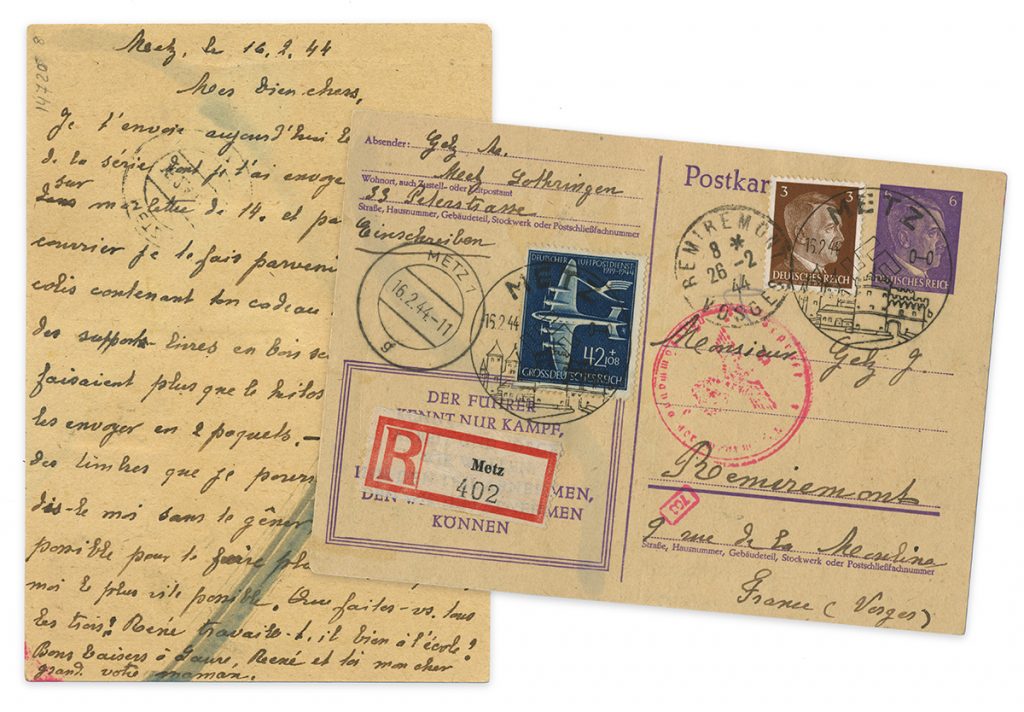 14720 8
Metz, le 16.2.44
Mes bien chers,
Je t'envoie aujourd'hui le
de la série dont je t'ai envoyé
sur
dans ma lettre de 14. et pa
courrier je te fais parveni
colis contenant ton cadeau
des supports-livres en bois
faisaient plus que le kilos
les envoyer en 2 paquets.—
des timbres que je pourr
dis-le moi sans te gêner
possible pour te faire pla
moi le plus vite possible. Que faites-vs. tous
les trois? René travaille-t-il bien à l'école?
Bons baisers à Laure, René et toi mon cher
grand. votre maman.
Absender: Gelz M.
Metz Lothringen
Wohnort, auch Zustell- oder Leitpostamt
33 Peterstrasse
Straße, Hausnummer, Gebäudeteil, Stockwerk oder Postschließfachnummer
Einschreiben
METZ 1
16.2.44-11
g
METZ
16.2.44
DEUTSCHER LUFTPOSTDIENST
1919-1944
42+108
GROSSDEUTSCHES REICH
DER FÜHRER
KENNT NUR KAMPF,
MEN,
DEN
KÖNNEN
R
Metz
402
Postkar
3 3
DEUTSCHES REICH
6
DEUTSCHES REICH
METZ
16.2.44 0-0
REMIREMONT
8 *
26-2
44
VOSGES
Monsieur Gelz J.
Remiremont
9 rue de la Mouline
Straße, Hausnummer, Gebäudeteil, Stockwerk oder Postschließfachnummer
France (Vosges)